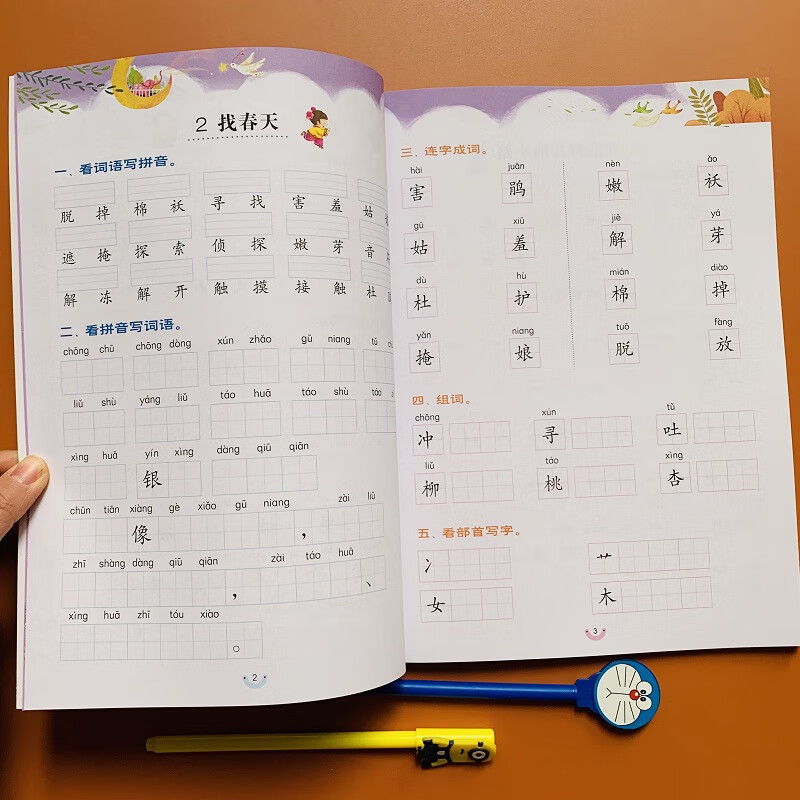 2 找春天
一、看词语写拼音。
脱 掉 棉 袄 寻 找 害 羞 姑
遮 掩 探 索 侦 探 嫩 芽 音
解 冻 解 开 触 摸 接 触 杜
二、看拼音写词语。
chōng chū chōng dòng xún zhǎo gū niang tǔ
liǔ shù yáng liǔ táo huā táo shù
xìng huā yín xìng dàng qiū qiān
银
chūn tiān xiàng gè xiǎo gū niang zài liǔ
像 ，
zhī shàng dàng qiū qiān zài táo huā
， 、
xìng huā zhī tóu xiào
。
2
三、连字成词。
hài juān nèn ǎo
害 鹃 嫩 袄
gū xiū jiě yá
姑 羞 解 芽
dù hù mián diào
杜 护 棉 掉
yǎn niang tuō fàng
掩 娘 脱 放
四、组词。
chōng xún tǔ
冲 寻 吐
liǔ táo xìng
柳 桃 杏
五、看部首写字。
冫 艹
女 木
3